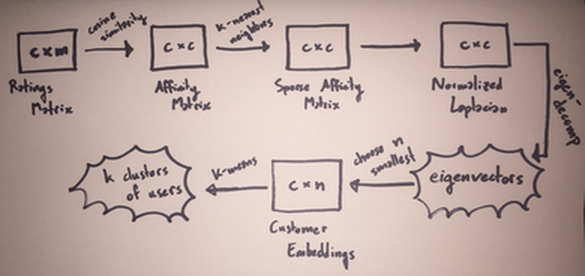 c x m
Ratings
Matrix
cosine
similarity
c x c
Affinity
Matrix
k-nearest
neighbors
c x c
Sparse Affinity
Matrix
c x c
Normalized
Laplacian
eigen-
decomp
eigenvectors
choose n
smallest
c x n
Customer
Embeddings
K-means
k clusters
of users